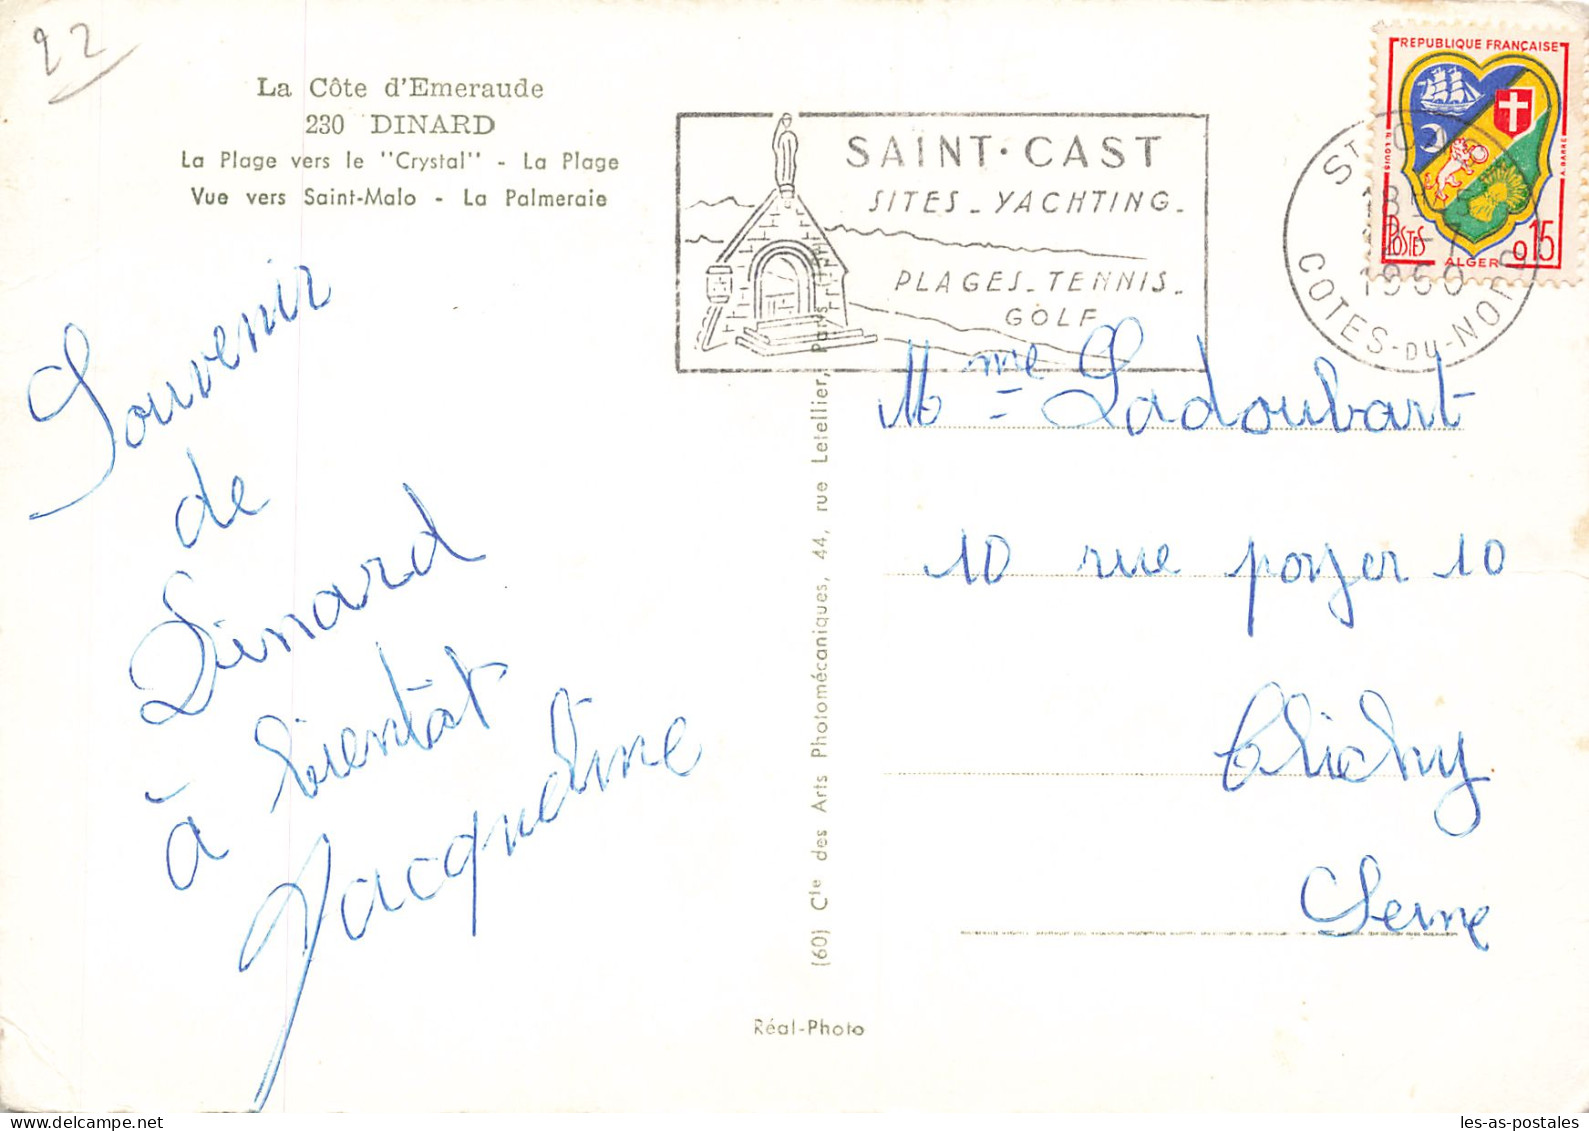 22
La Côte d'Emeraude
230 DINARD
La Plage vers le "Crystal" - La Plage
Vue vers Saint-Malo - La Palmeraie
SAINT·CAST
SITES_YACHTING_
PLAGES_TENNIS_
GOLF
REPUBLIQUE FRANÇAISE
POSTES
ALGER
0,15
ST CA
18H
1960
COTES-DU-NORD
Souvenir
de
Dinard
à bientôt
Jacqueline
(60) Cie des Arts Photomécaniques, 44, rue Letellier, Paris
Réal-Photo
Mme Ladoubart
10 rue poyer 10
Clichy
Seine
les-as-postales